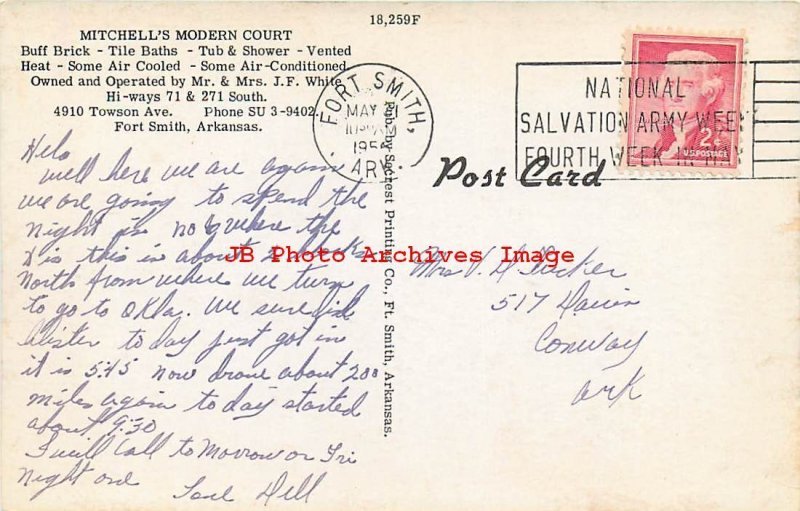 18,259F
MITCHELL'S MODERN COURT
Buff Brick - Tile Baths - Tub & Shower - Vented
Heat - Some Air Cooled - Some Air-Conditioned
Owned and Operated by Mr. & Mrs. J.F. White
Hi-ways 71 & 271 South.
4910 Towson Ave. Phone SU 3-9402
Fort Smith, Arkansas.
FORT SMITH,
MAY
ARK.
NATIONAL
SALVATION ARMY WEEK
FOURTH WEEK IN MAY
2¢
U.S. POSTAGE
Post Card
Pub. by Secrest Printing Co., Ft. Smith, Arkansas.
Helo
well here we are again
we are going to spend the
night in no 6 where the
X is this is about 2 blocks
North from where we turn
to go to Okla. We sure did
to day just got in
it is 5:45 now drove about 200
miles again to day started
about 9:30
I will Call to Morrow or Fri
night one
Dell
Mrs V. D
517
Conway
Ark
JB Photo Archives Image